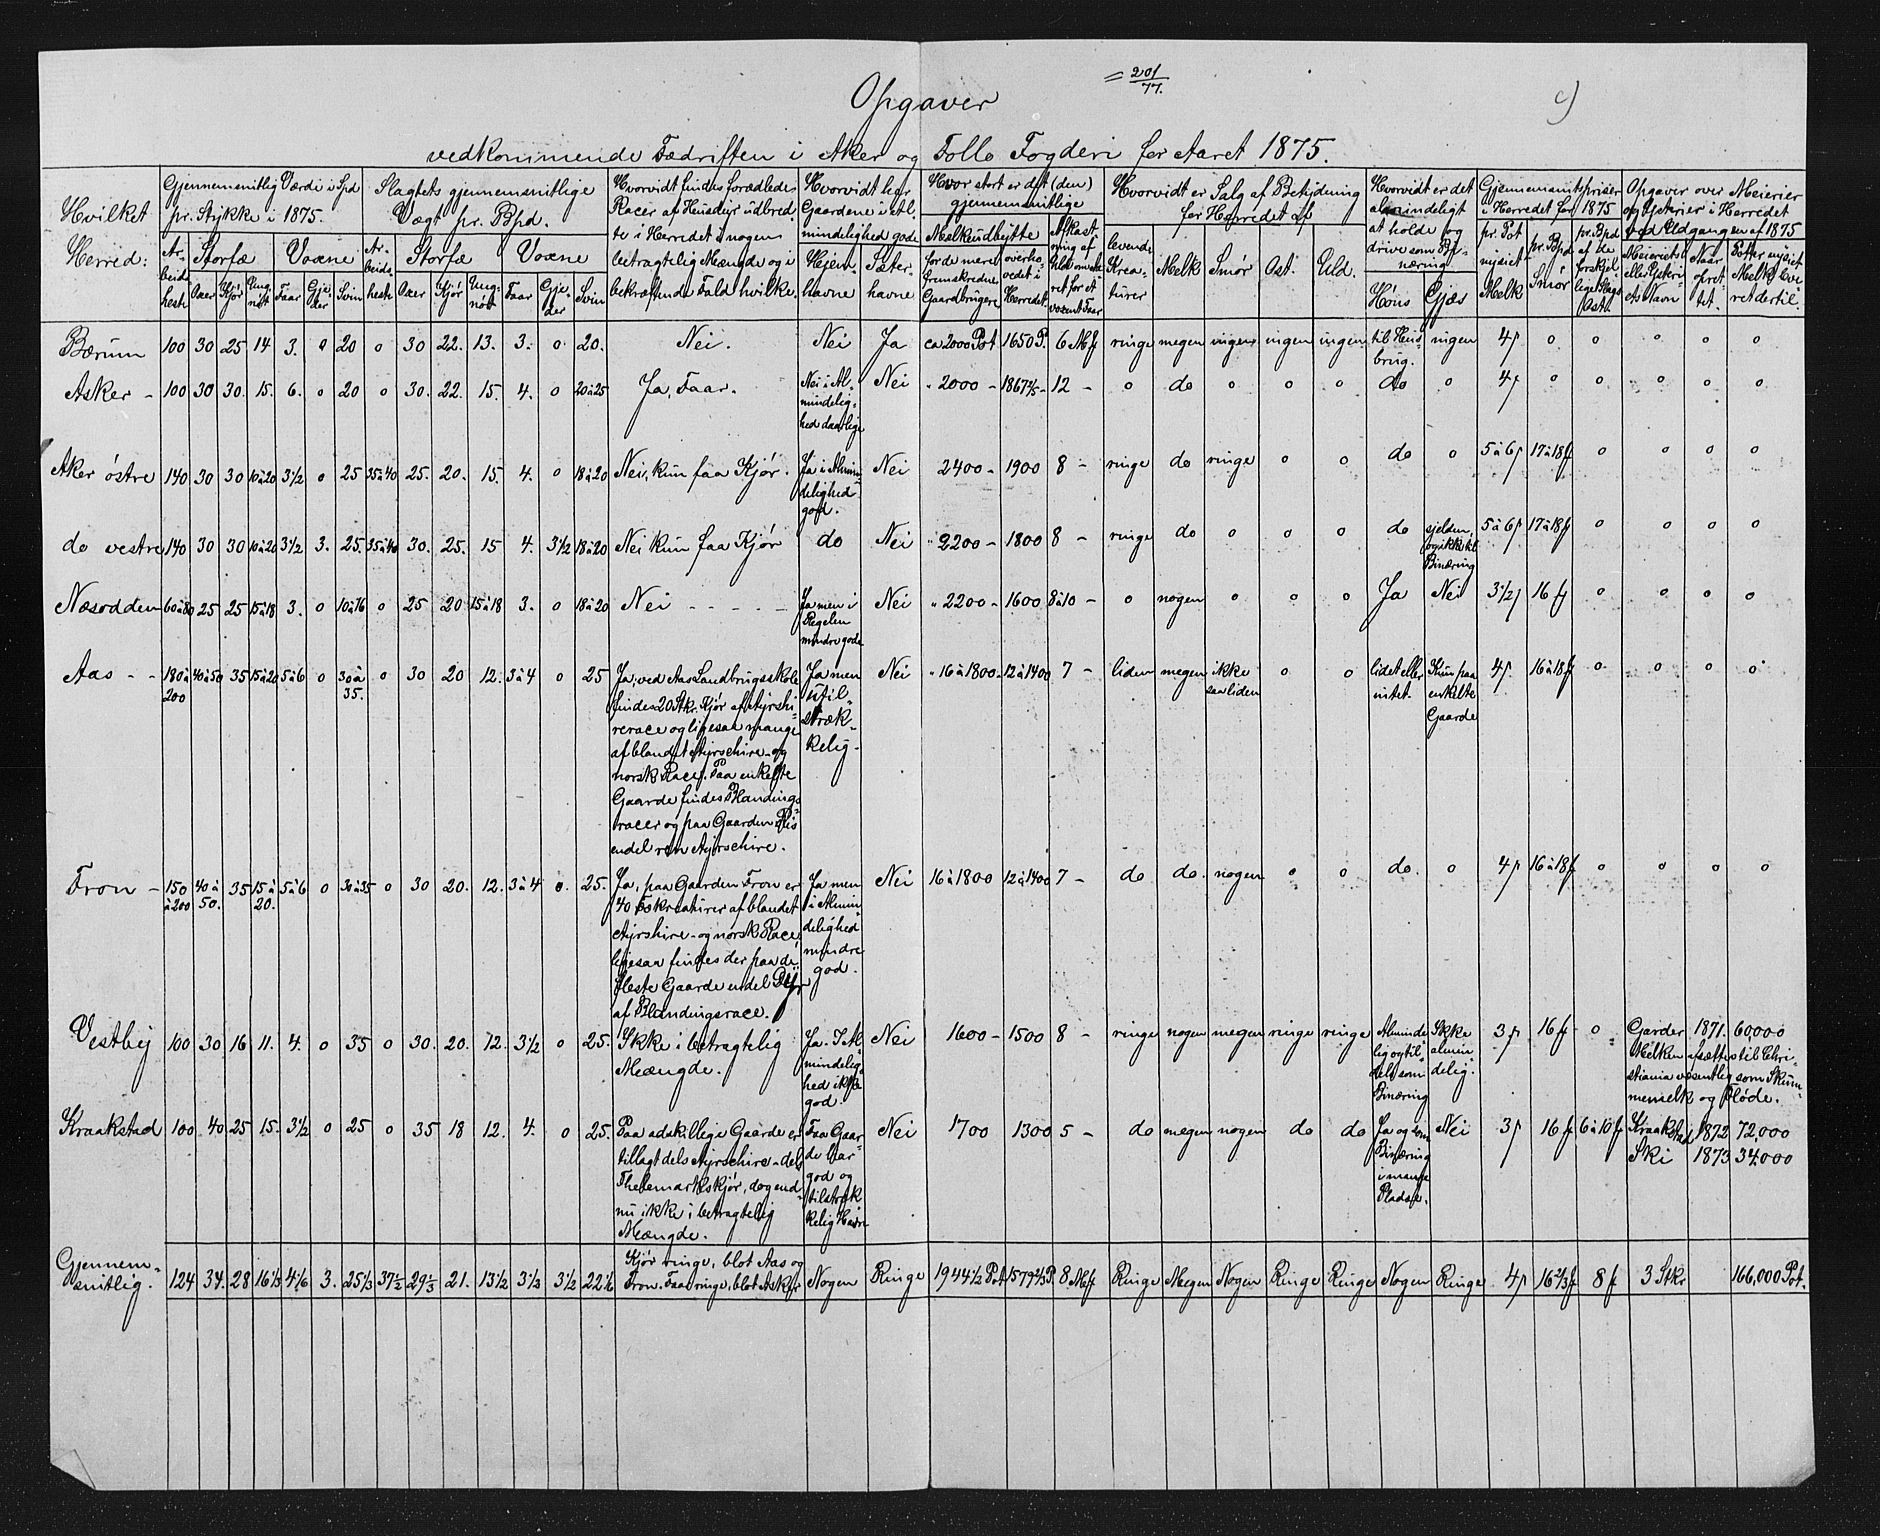 = 201/77.
c)
Opgaver
vedkommende Fædriften i Aker og Follo Fogderi for Aaret 1875.
Hvilket Herred:
Gjennemsnitlig Værdi i Spd pr. Stykke i 1875.
Arbeidshest | Storfæ: Oxer, Kjør, Ungnöt | Voxne: Faar, Gjeder, Svin
Slagtets gjennemsnitlige Vægt pr. Bpd.
Arbeidsheste | Storfæ: Oxer, Kjør, Ungnöt | Voxne: Faar, Gjeder, Svin
Hvorvidt findes forædlede Racer af Husdyr udbredte i Herredet i nogen betragtelig Mængde og i bekræftende Fald hvilke.
Hvorvidt har Gaardene i Almindelighed gode
Hjemhavne | Sæterhavne
Hvor stort er det (den) gjennemsnitlige
Melkeudbytte | for de mere fremskredne Gaardbrugere | overhovedet i Herredet
Afkastning af Uld om året for et voxent Faar
Hvorvidt er Salg af Betydning for Herredet af
levende Kreaturer | Melk | Smør | Ost. | Uld.
Hvorvidt er det almindeligt at holde og drive som Binæring
Høns | Gjæs
Gjennemsnitspriser i Herredet for 1875
pr. Pot nysiet Melk | pr. Bpd Smör | pr. Bpd af de forskjellige Slags Ost.
Opgaver over Meierier og Ysterier i Herredet ved Udgangen af 1875
Meieriets eller Ysteriets Navn | Naar oprettet. | Potter nysiet Melk leveret dertil.
Bærum 100 30 25 14 3. 0 20 0 30 22. 13. 3. 0 20. Nei. Nei Ja ca 2000 Pot 1650 P. 6 Mk ringe megen ingen ingen ingen til Husbrug. ingen 4 0 0 0 0 0
Asker - 100 30 30. 15. 6. 0 20 0 30. 22. 15. 4. 0 20 à 25 Ja, Faar. Nei i Almindelighed daarlige Nei " 2000 - 1867 12 - 0 do 0 0 0 do 0 4 0 0 0 0 0
Aker östre 140 30 30 10 à 20 3 1/2 0 25 35 à 40 25. 20. 15. 4. 0 18 à 20 Nei, kun faa Kjør. Ja i Almindelighed god. Nei 2400 - 1900 8 - ringe do ringe 0 0 do 0 5 à 6 17 à 18 0 0 0 0
do vestre 140 30 30 10 à 20 3 1/2 3. 25. 35 à 40 30. 25. 15 4. 3 1/2 18 à 20 Nei kun faa Kjør do Nei " 2200 - 1800 8 - ringe do 0 0 0 do sjelden, og ikke til Binæring 5 à 6 17 à 18 0 0 0 0
Næsodden 60 à 80 25 25 15 à 18 3. 0 10 à 16 0 25 20 15 à 18 3. 0 18 à 20 Nei - - - - Ja men i Regelen mindre gode Nei " 2200 - 1600 8 à 10 - 0 nogen 0 0 0 Ja Nei 3 1/2 16 0 0 0 0
Aas - - 180 à 200 40 à 50 35 15 à 20 5 à 6 0 30 à 35. 0 30 20 12. 3 à 4 0 25 Ja, ved Aas Landbrugsskole findes 20 Stkr. Kjør af Ayrshirerace og ligesaa mange af blandet Ayrschire- og norsk Race. Paa enkelte Gaarde findes Blandingsracer og paa Gaarden Riis endel ren Ayrschire. Ja men utilstrækkelig. Nei " 16 à 1800 - 12 à 1400 7 - liden megen ikke saa liden 0 0 lidet eller intet. Kun paa enkelte Gaarde 4 16 à 18 0 0 0 0
Fron - 150 à 200 40 à 50. 35 15 à 20. 5 à 6 0 30 à 35 0 30 20. 12. 3 à 4 0. 25. Ja, paa Gaarden Fron er 40 Fækreaturer af blandet Ayrshire- og norsk Race, ligesaa findes der paa de fleste Gaarde endel Dyr af Blandingsrace. Ja men i Almindelighed mindre god. Nei 16 à 1800 12 à 1400 7 - do do. nogen 0 0 do. 0 4 16 à 18 0 0 0 0
Vestby 100 30 16 11. 4. 0 35 0 30. 20. 12. 3 1/2 0 25. Ikke i betragtelig Mængde. Ja. I Almindelighed ikke god. Nei 1600 - 1500 8 - ringe nogen megen ringe ringe Almindelig og tildels som Binæring Ikke almindelig. 3 16 0 Garder 1871. 60,000 Melken afsættes til Christiania væsentlig som Skummemelk og Fløde.
Kraakstad 100 40 25 15. 3 1/2 0 25 0 35 18 12. 4. 0 25. Paa adskillige Gaarde er tillagt dels Ayrschire- dels Thelemarkskjør, dog endnu ikke i betragtelig Mængde. Faa Gaarde har god og tilstrækkelig Havn Nei 1700 1300 5 - do megen nogen do do Ja og som Binæring i mange Pladse. Nei 3 16 6 à 10 Kraakstad 1872 72,000
Ski 1873 34,000
Gjennemsnitlig. 124 34. 28 16 1/3 4 1/6 3. 25 1/3 37 1/2 29 1/3 21. 13 1/2 3 1/3 3 1/2 22 1/6 Kjør ringe, blot Aas og Fron. Faar ringe, blot Asker Nogen Ringe 1944 1/2 Pot 1579 2/3 P. 8 Mk Ringe Megen Nogen Ringe Ringe Nogen Ringe 4 16 2/3 8 3 Stkr 166,000 Pot.